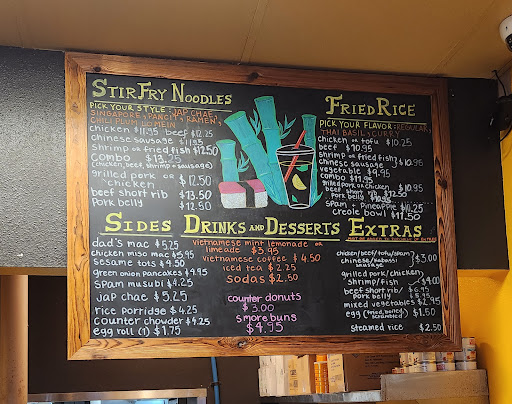 STIR FRY NOODLES
PICK YOUR STYLE: JAP CHAE,
SINGAPORE, PANCIT, RAMEN,
CHILI PLUM LO MEIN
chicken $11.95 beef $12.25
chinese sausage $11.95
shrimp or fried fish $12.50
combo $13.25
(chicken, beef, shrimp + sausage)
grilled pork or
chicken $12.50
beef short rib $13.50
pork belly $12.50
FRIED RICE
PICK YOUR FLAVOR: REGULAR,
THAI BASIL, CURRY
chicken or tofu $10.25
beef $10.95
shrimp or fried fish
chinese sausage $10.95
vegetable $9.95
combo $11.95
grilled pork or chicken $10.95
beef short rib $12.50
pork belly $10.95
spam + pineapple $10.25
creole bowl $11.50
SIDES DRINKS AND DESSERTS EXTRAS
dad's mac $5.25
chicken miso mac $5.95
sesame tots $4.50
green onion pancakes $4.95
spam musubi $4.25
jap chae $5.25
rice porridge $4.25
counter chowder $4.25
egg roll (1) $1.75
vietnamese mint lemonade or
limeade $3.95
vietnamese coffee $4.50
iced tea $2.25
sodas $2.50
counter donuts
$3.00
smore buns
$4.95
chicken/beef/tofu/spam/
chinese sausage $3.00
grilled pork/chicken/
shrimp/fish $4.00
beef short rib/ $6.95
pork belly $5.95
mixed vegetables $2.95
egg (fried, boiled, scrambled) $1.50
steamed rice $2.50